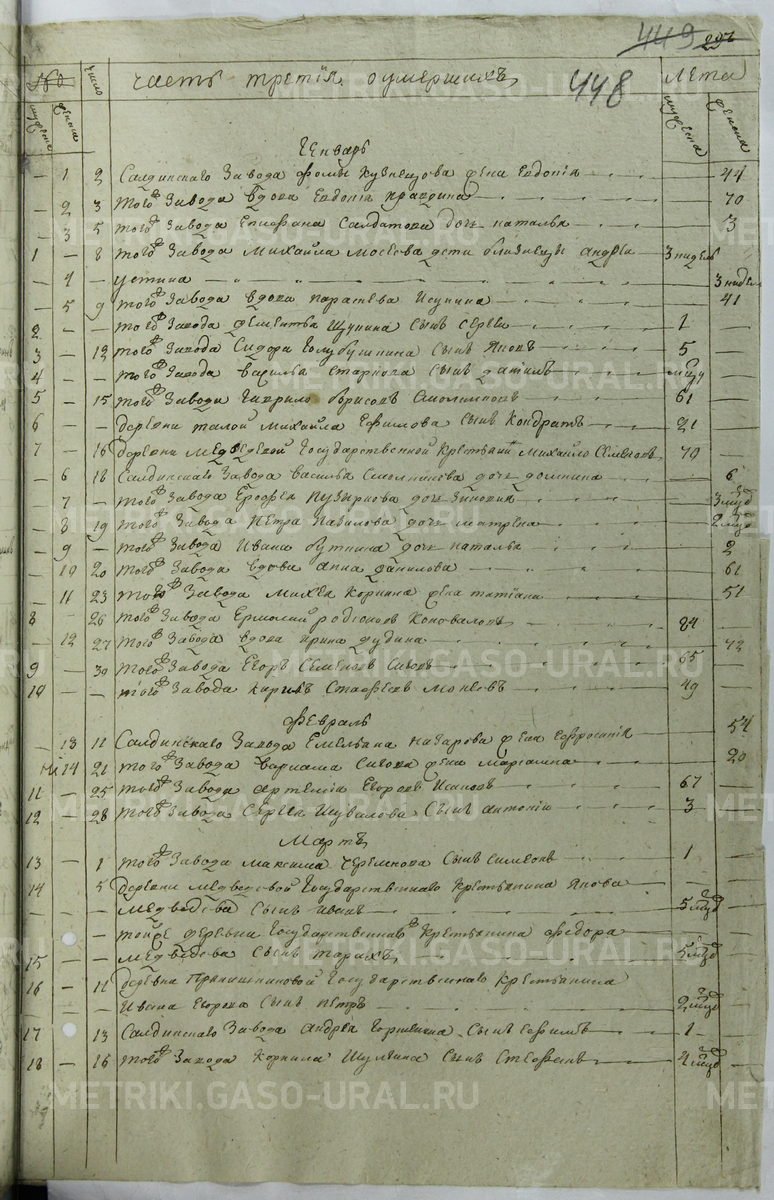 449 29
No число часть третiя. о умершихъ, 448 Лета
мужеска женска мужеска женска
Генварь
— 1 2 Салдинскаго Завода Фомы Кузнецова жена Евдокiя 44
— 2 3 того ж Завода вдова Евдокiя 70
— 3 5 того ж Завода Епифана Салдатова дочь наталья 3
1 — 8 того ж Завода Михайла Мосеева дети близнецы андрей 3 недель —
— 4 — устина — 3 недель
— 5 9 того ж Завода вдова парасковья Исупина 41
2 — — того ж Завода дементья Шупина Сынъ Сергей 1 —
3 — 12 того ж Завода Сидора Голубушкина Сынъ Яковъ 5 —
4 — — того ж Завода василья Старкова Сынъ данилъ —
5 — 15 того ж Завода гаврило борисовъ Смольниковъ 61 —
6 — — деревни талой михайла Ефимова Сынъ Кондратъ 21 —
7 — 16 деревни медведевой Государственной Крестьянинъ михайло Семеновъ 70 —
— 6 18 Салдинскаго Завода василья Смольникова дочь домнина — 6
— 7 — того ж Завода Ерофея Пузырнова дочь зиновия — 3
— 8 19 того ж Завода Петра Павилова дочь матрена — 2
— 9 — того ж Завода Ивана буткина дочь наталья — 2
— 10 20 того ж Завода вдова анна данилова — 61
— 11 23 того ж Завода Михея Коркина жена татiана — 51
8 — 26 того ж Завода Ермолай родiоновъ Коноваловъ 84 —
— 12 27 того ж Завода вдова ирина дудина — 72
9 — 30 того ж Завода Егоръ Семеновъ Сивовъ 65 —
10 — — того ж Завода Карпъ Стафеевъ мокеевъ 49 —
Февраль
— 13 11 Салдинскаго Завода Емельяна назарова жена ефросинiя — 54
— 14 21 того ж Завода варлама Сивова жена марiамна — 20
11 — 25 того ж Завода артемiй Егоровъ Исаковъ 67 —
12 — 28 того ж Завода Сергея Шувалова Сынъ антонiй 3 —
Мартъ
13 — 1 того ж Завода максима черемнова Сынъ Симеонъ 1 —
14 — 5 деревни медведевой Государственнаго Крестьянина Якова
— медведева Сынъ иванъ 5 —
15 — — тойже деревни Государственнаго Крестьянина Федора
— медведева Сынъ тарахъ 5 —
16 — 11 деревни Прянишниковой Государственнаго Крестьянина
Ивана Егорова Сынъ петръ 2 —
17 — 13 Салдинскаго Завода андрея Сынъ ефимъ 1 —
18 — 16 того ж Завода Корнила Шулгина Сынъ Стефанъ 4 —
METRIKI.GASO-URAL.RU